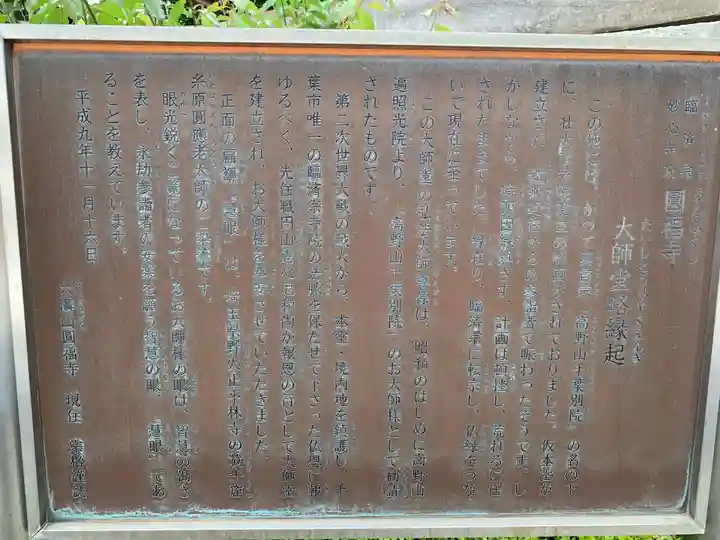 臨済宗
妙心寺派 圓福寺
大師堂略縁起
この地には、かつて真言宗「高野山千葉別院」の名の下
に、壮大な寺院建立の計画がされておりました。仮本堂が
建立され、近郷近在からの参詣者で賑わったそうです。し
かしながら、 計画は頓挫し、荒れるに任
されたままでした。 臨済宗に転宗し、仏縁をつな
いで現在に至っています。
この大師堂の弘法大師尊像は、昭和のはじめに高野山
遍照光院より、「高野山千葉別院」のお大師様として勧請
されたものです。
第二次世界大戦の戦火から、本堂・境内地を鎮護し、千
葉市唯一の臨済宗寺院の法脈を保たせて下さった仏恩に報
ゆるべく、先住戦円山 和尚が報恩の行として大師堂
を建立され、お大師様を奉安させていただきました。
正面の扁額「慧眼」は、埼玉県野火止平林寺の
糸原圓應老大師のご染筆です。
眼光鋭くご覧になっているお大師様の眼は、智慧の働き
を表し、永劫参詣者の安楽を願う智慧の眼、「慧眼」であ
ることを教えています。
平成九年十一月十六日
圓福寺 現住 宗格謹誌